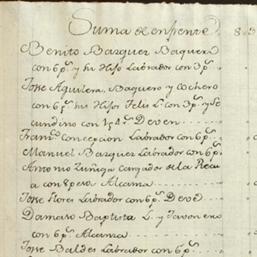 Suma del enfrente 8..3
Benito Bazques Baquero
con 6 p.s y su Hijo Labrador con 3 p.s
Jose Aguilera, Baquero y Cochero
con 6 p.s su Hijo Felis L.r con 3 p.s y Se
cundino con 1 p.s 4 Deven
Fran.co Concepcion Labrador con 6 p.s
Manuel Bazques Labrador con 6 p.s
Antonio Zuñiga Cargador de la Recu
a con 8 pesos Alcanza
Jose Flora Labrador con 6 p.s Deve
Damaso Baptista L.r y Favonero
con 6 p.s Alcanza
Jose Baldes Labrador con 6 p.s